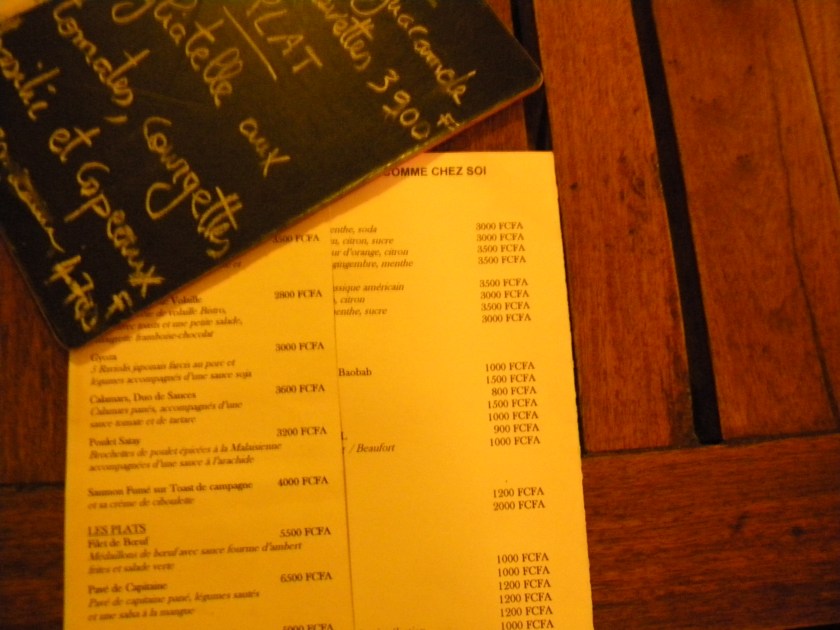 PLAT
3900 F
tomates, Courgettes,
et Copeaux
COMME CHEZ SOI
3500 FCFA
Volaille 2800 FCFA
de volaille Bistro,
et une petite salade,
framboise-chocolat
Gyoza 3000 FCFA
3 Raviolis japonais farcis au porc et
légumes accompagnés d'une sauce soja
Calamars, Duo de Sauces 3600 FCFA
Calamars panés, accompagnés d'une
sauce tomate et de tartare
Poulet Satay 3200 FCFA
Brochettes de poulet épicées à la Malaisienne
accompagnées d'une sauce à l'arachide
Saumon Fumé sur Toast de campagne 4000 FCFA
et sa crème de ciboulette
LES PLATS
Filet de Bœuf 5500 FCFA
Médaillons de bœuf avec sauce fourme d'ambert
frites et salade verte
Pavé de Capitaine 6500 FCFA
Pavé de capitaine pané, légumes sautés
et une salsa à la mangue
menthe, soda 3000 FCFA
citron, sucre 3000 FCFA
d'orange, citron 3500 FCFA
gingembre, menthe 3500 FCFA
américain 3500 FCFA
citron 3000 FCFA
menthe, sucre 3500 FCFA
3000 FCFA
Baobab 1000 FCFA
1500 FCFA
800 FCFA
1500 FCFA
1000 FCFA
900 FCFA
/ Beaufort 1000 FCFA
1200 FCFA
2000 FCFA
1000 FCFA
1000 FCFA
1200 FCFA
1200 FCFA
1200 FCFA
1000 FCFA